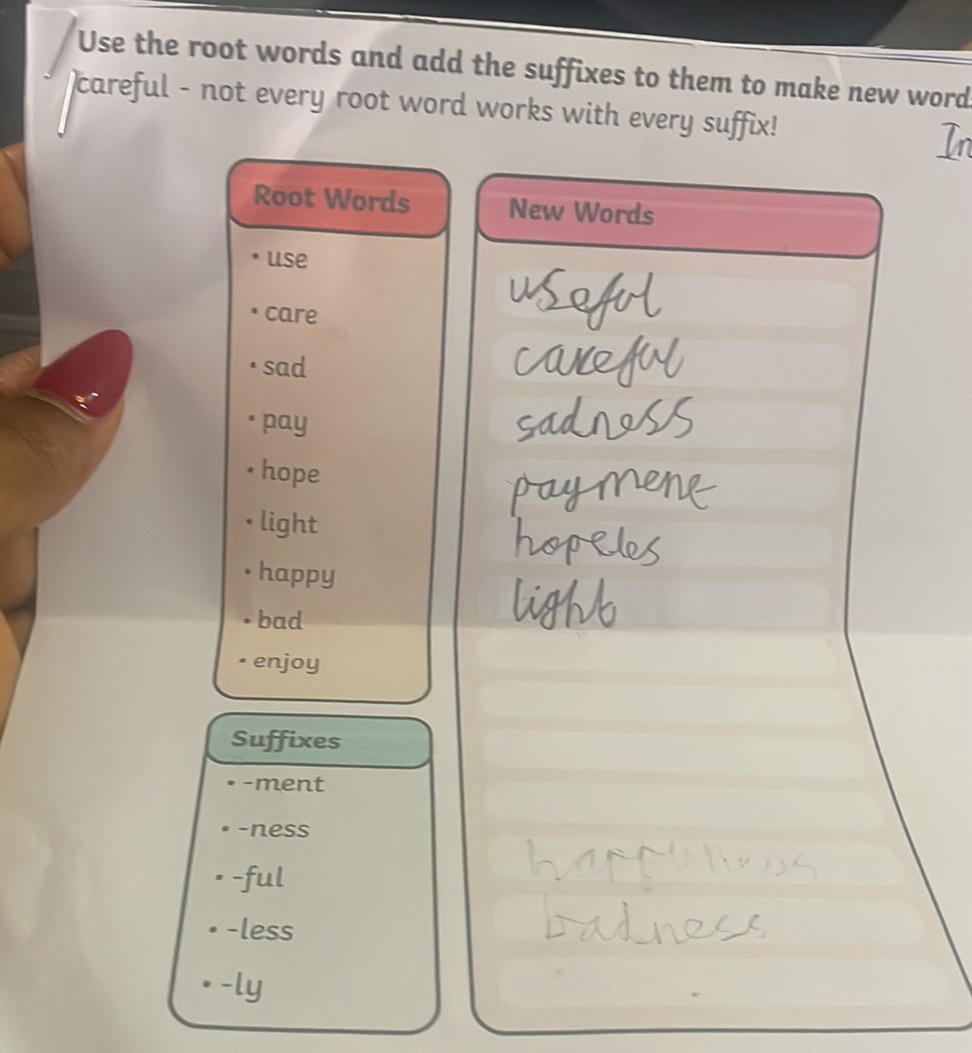 Use the root words and add the suffixes to them to make new word
careful - not every root word works with every suffix!
In
Root Words
• use
• care
• sad
• pay
• hope
• light
• happy
• bad
• enjoy
Suffixes
• -ment
• -ness
• -ful
• -less
• -ly
New Words
useful
careful
sadness
payment
hopeles
light
badness